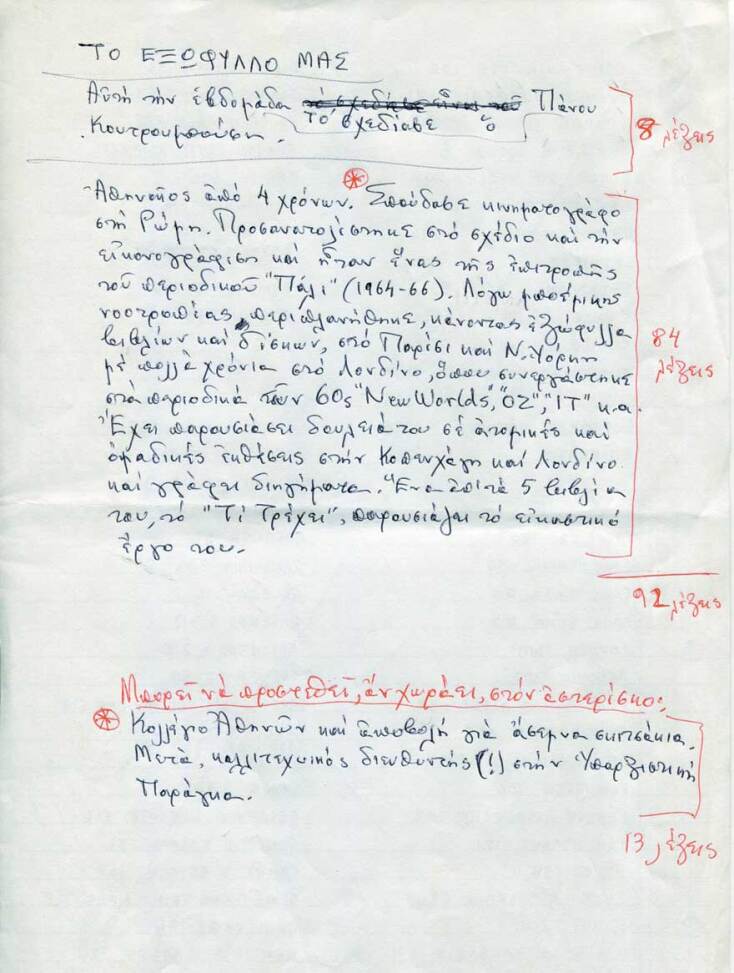 ΤΟ ΕΞΩΦΥΛΛΟ ΜΑΣ
Αὐτὴ τὴν ἑβδομάδα τὸ σχεδίασε εἶναι τοῦ Πάνου
Κουτρουμπούση. Τὸ σχεδίασε ὁ
8 λέξεις
Ἀθηναῖος ἀπὸ 4 χρόνων. Σπούδασε κινηματογράφο
στὴ Ρώμη. Προσανατολίστηκε στὸ σχέδιο καὶ τὴν
εἰκονογράφιση καὶ ἦταν ἕνας τῆς ἐπιτροπῆς
τοῦ περιοδικοῦ "Πάλι" (1964-66). Λόγω μποέμικης
νοοτροπίας, περιπλανήθηκε, κάνοντας ἐξώφυλλα
βιβλίων καὶ δίσκων, στὸ Παρίσι καὶ Ν. Υόρκη
μὲ πολλὰ χρόνια στὸ Λονδίνο, ὅπου συνεργάστηκε
στὰ περιοδικὰ τῶν 60s "New Worlds", "OZ", "IT" κ.α.
Ἔχει παρουσιάσει δουλειά του σὲ ἀτομικές καὶ
ὁμαδικές ἐκθέσεις στὴν Κοπενχάγη καὶ Λονδίνο
καὶ γράφει διηγήματα. Ἕνα ἀπὸ τὰ 5 βιβλία
του, τὸ "Τί Τρέχει", παρουσιάζει τὸ εἰκαστικό
ἔργο του.
84
λέξεις
92 λέξεις
Μπορεῖ νὰ προστεθεῖ, ἄν χωράει, στὸν ἀστερίσκο:
Κολλέγιο Ἀθηνῶν καὶ ἀποβολή γιὰ ἄσεμνα σκιτσάκια.
Μετά, καλλιτεχνικός διευθυντής (!) στὴν Ὑπαρξιστική
Παράγκα.
13 λέξεις